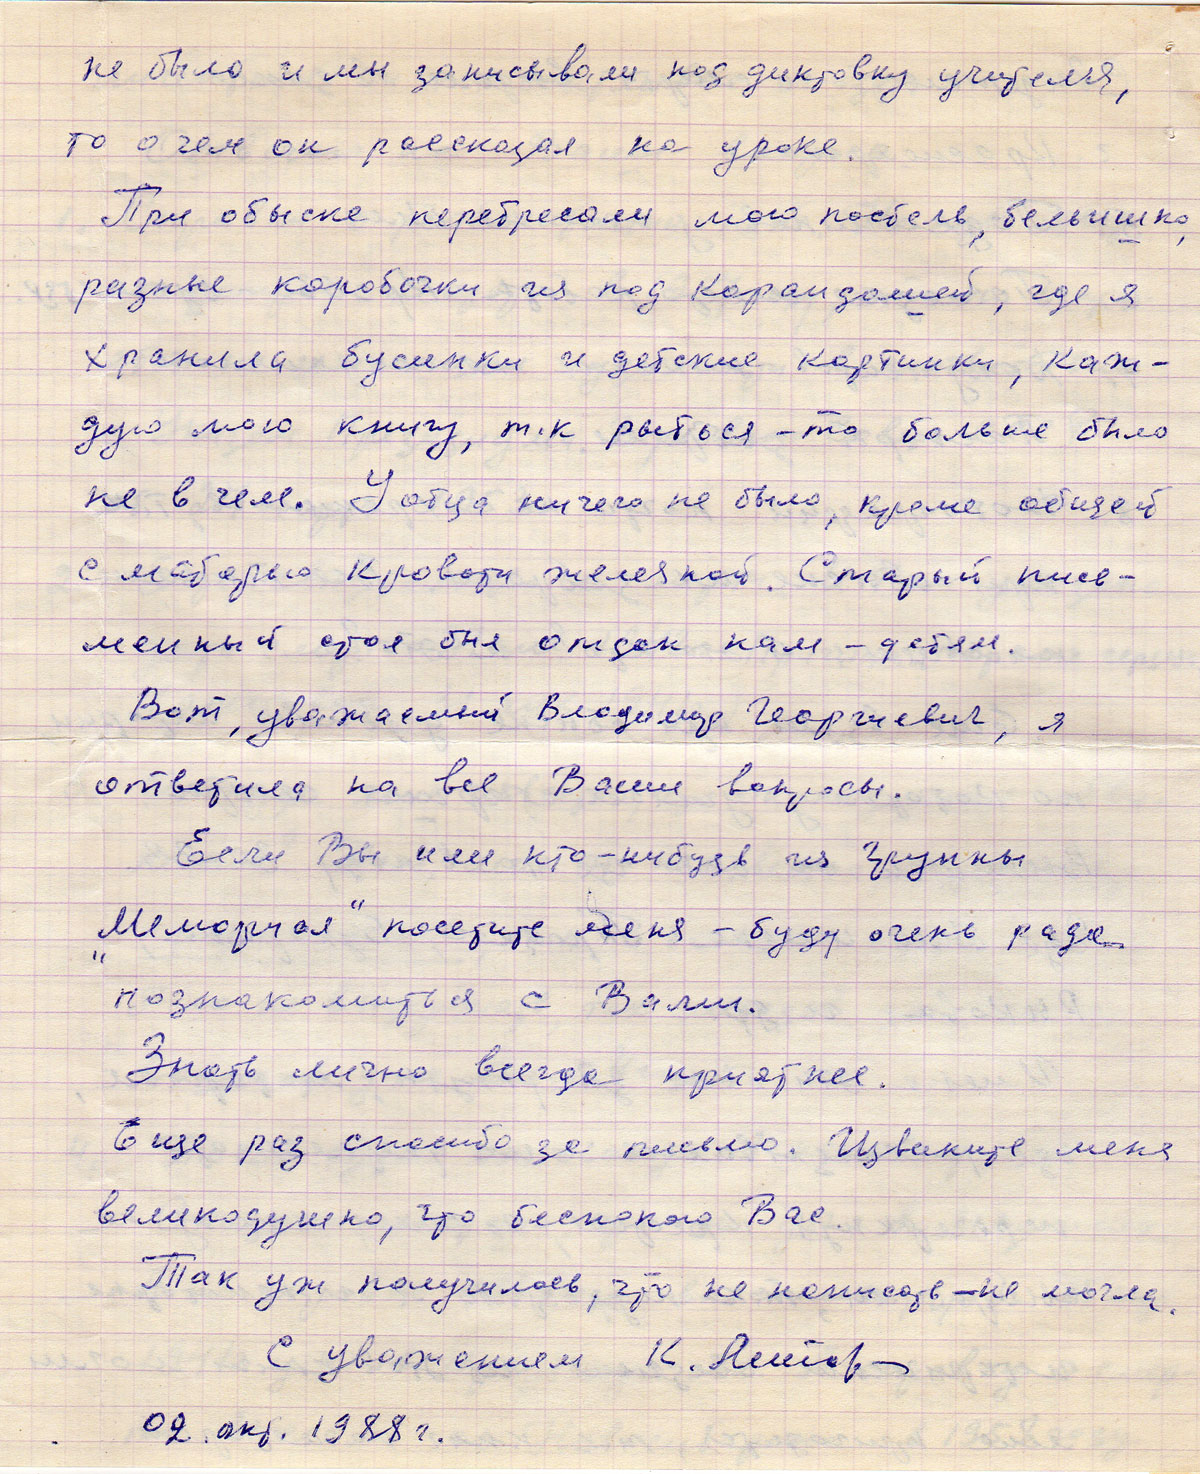 не было и мы записывали под диктовку учителя,
то о чем он рассказал на уроке.
При обыске перебросали мою постель, бельишко,
разные коробочки из под карандашей, где я
хранила бусинки и детские картинки, каж-
дую мою книгу, т.к рыться-то больше было
не в чем. У отца ничего не было, кроме общей
с матерью кровати железной. Старый пись-
менный стол был отдан нам - детям.
Вот, уважаемый Владимир Георгиевич, я
ответила на все Ваши вопросы.
Если Вы или кто-нибудь из группы
„Мемориал“ посетите меня - буду очень рада
познакомиться с Вами.
Знать лично всегда приятнее.
Еще раз спасибо за письмо. Извините меня
великодушно, что беспокою Вас.
Так уж получилось, что не написать - не могла.
С уважением К.
02. окт. 1988 г.